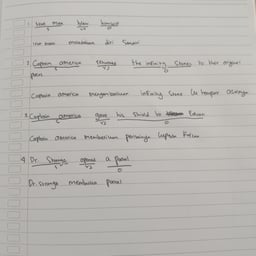 1. Iron man blew himself
S V2 O
Iron man meledakkan diri sendiri
2. Captain america returned the infinity stones to their original
S V2 O
place
Captain america mengembalikan infinity stone ke tempat aslinya
3. Captain america gave his shield to Falcon
S V2 O
Captain america memberikan perisainya kepada Falcon
4. Dr. Strange opened a portal
S V2 O
Dr. Strange membuka portal